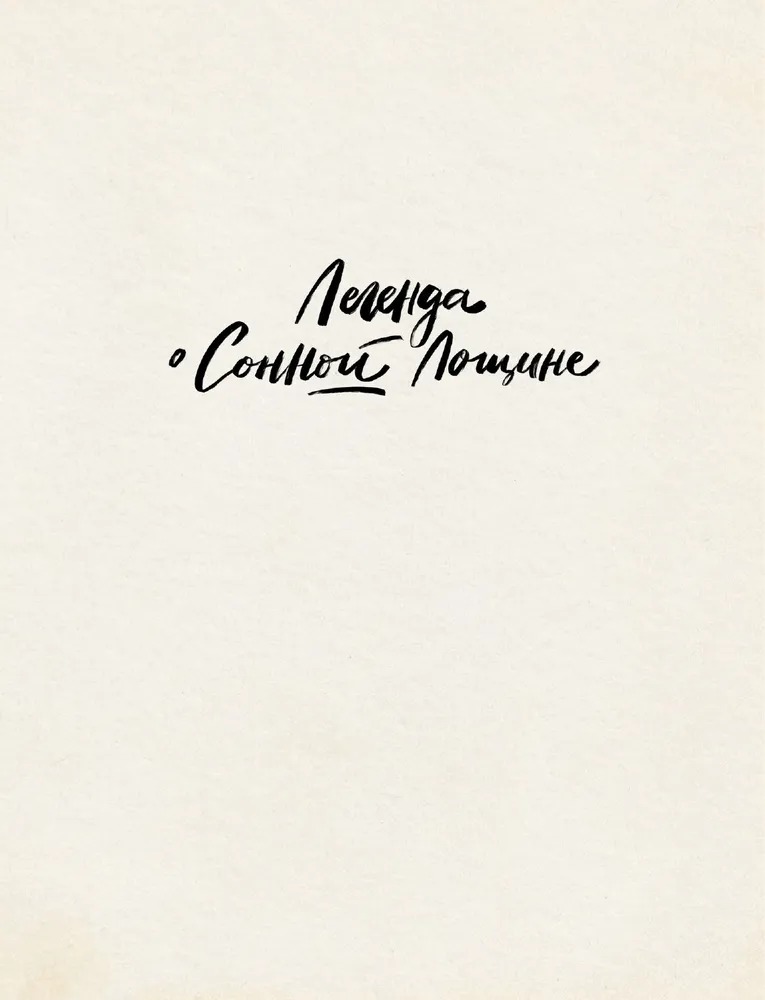 Легенда
о Сонной Лощине